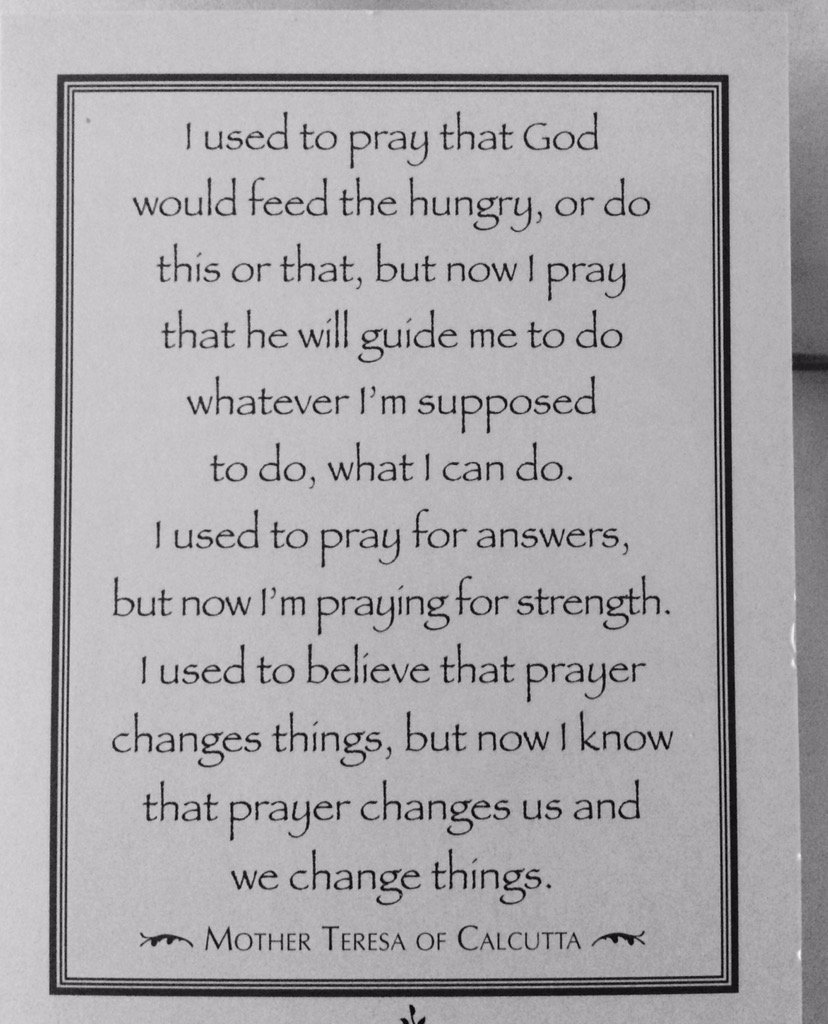 I used to pray that God
would feed the hungry, or do
this or that, but now I pray
that he will guide me to do
whatever I'm supposed
to do, what I can do.
I used to pray for answers,
but now I'm praying for strength.
I used to believe that prayer
changes things, but now I know
that prayer changes us and
we change things.
MOTHER TERESA OF CALCUTTA